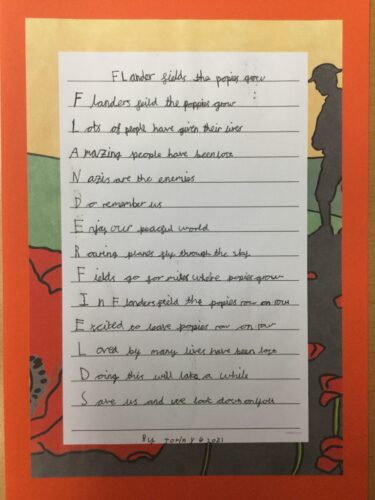 FLander fields the popies grow
Flanders feild the poppies grow
Lots of people have given their lives
Amazing people have been lost
Nazis are the enemies
Do remember us
Enjoy our peacful world
Roaring planes fly through the sky
Fields go for miles where popies grow
In Flandersfield the popies row on row
Excited to leave popies row on row
Loved by many lives have been lost
Doing this will take a while
Save us and we look down on you
By 2021